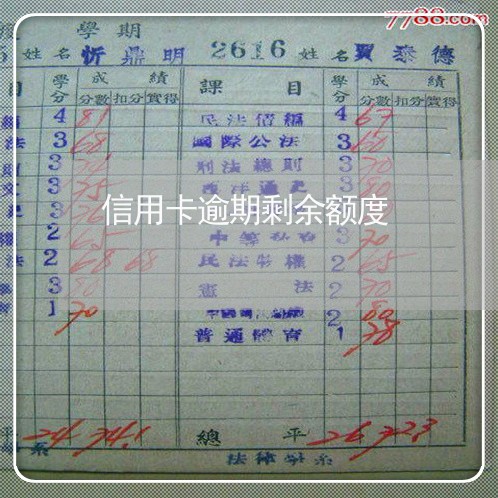 7788.com
學期
姓名 忻鼎明 2616 姓名 賈泰德
目 學分 成績 課目 學分 成績
分數 扣分 實得 分數 扣分 實得
4 81 民法債編 4 67
法 3 68 國際公法 3 60
3 刑法總則 3 70
3 75 西洋通史 3 80
信用卡逾期剩余额度
2 65 中等 3 70
法 2 68 68 民法物權 2 65
3 80 憲法 2 70
1 70 2 80
普通體育 1 78
平 24 74.1 總平 26 72.3
系 法律學系